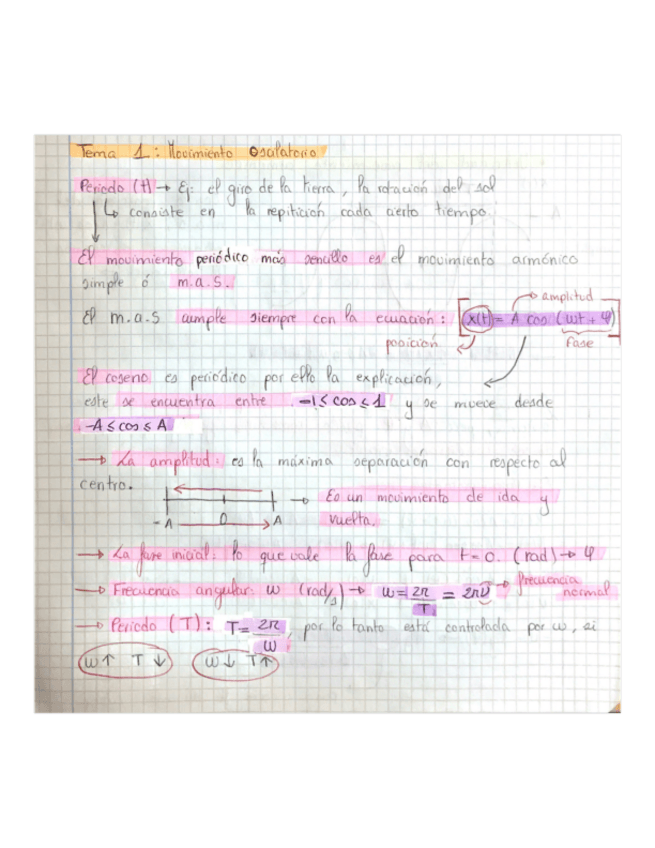 Tema 1: Movimiento Oscilatorio
Periodo (t) → Ej: el giro de la tierra, la rotación del sol
↳ consiste en la repitición cada cierto tiempo.
El movimiento periódico más sencillo es el movimiento armónico
simple ó m.a.s.
→ amplitud
El m.a.s cumple siempre con la ecuación: [x(t) = A cos (ωt + φ)]
posición
fase
El coseno es periódico por ello la explicación,
este se encuentra entre -1 ≤ cos ≤ 1 y se mueve desde
-A ≤ cos ≤ A
→ La amplitud: es la máxima separación con respecto al
centro.
→ Es un movimiento de ida y
-A 0 A vuelta.
→ La fase inicial: lo que vale la fase para t=0. (rad) → φ
→ Frecuencia angular: ω (rad/s) → ω = 2π/T = 2πν → frecuencia
normal
→ Periodo (T): T = 2π/ω, por lo tanto está controlada por ω, si
ω↑ T↓ ω↓ T↑